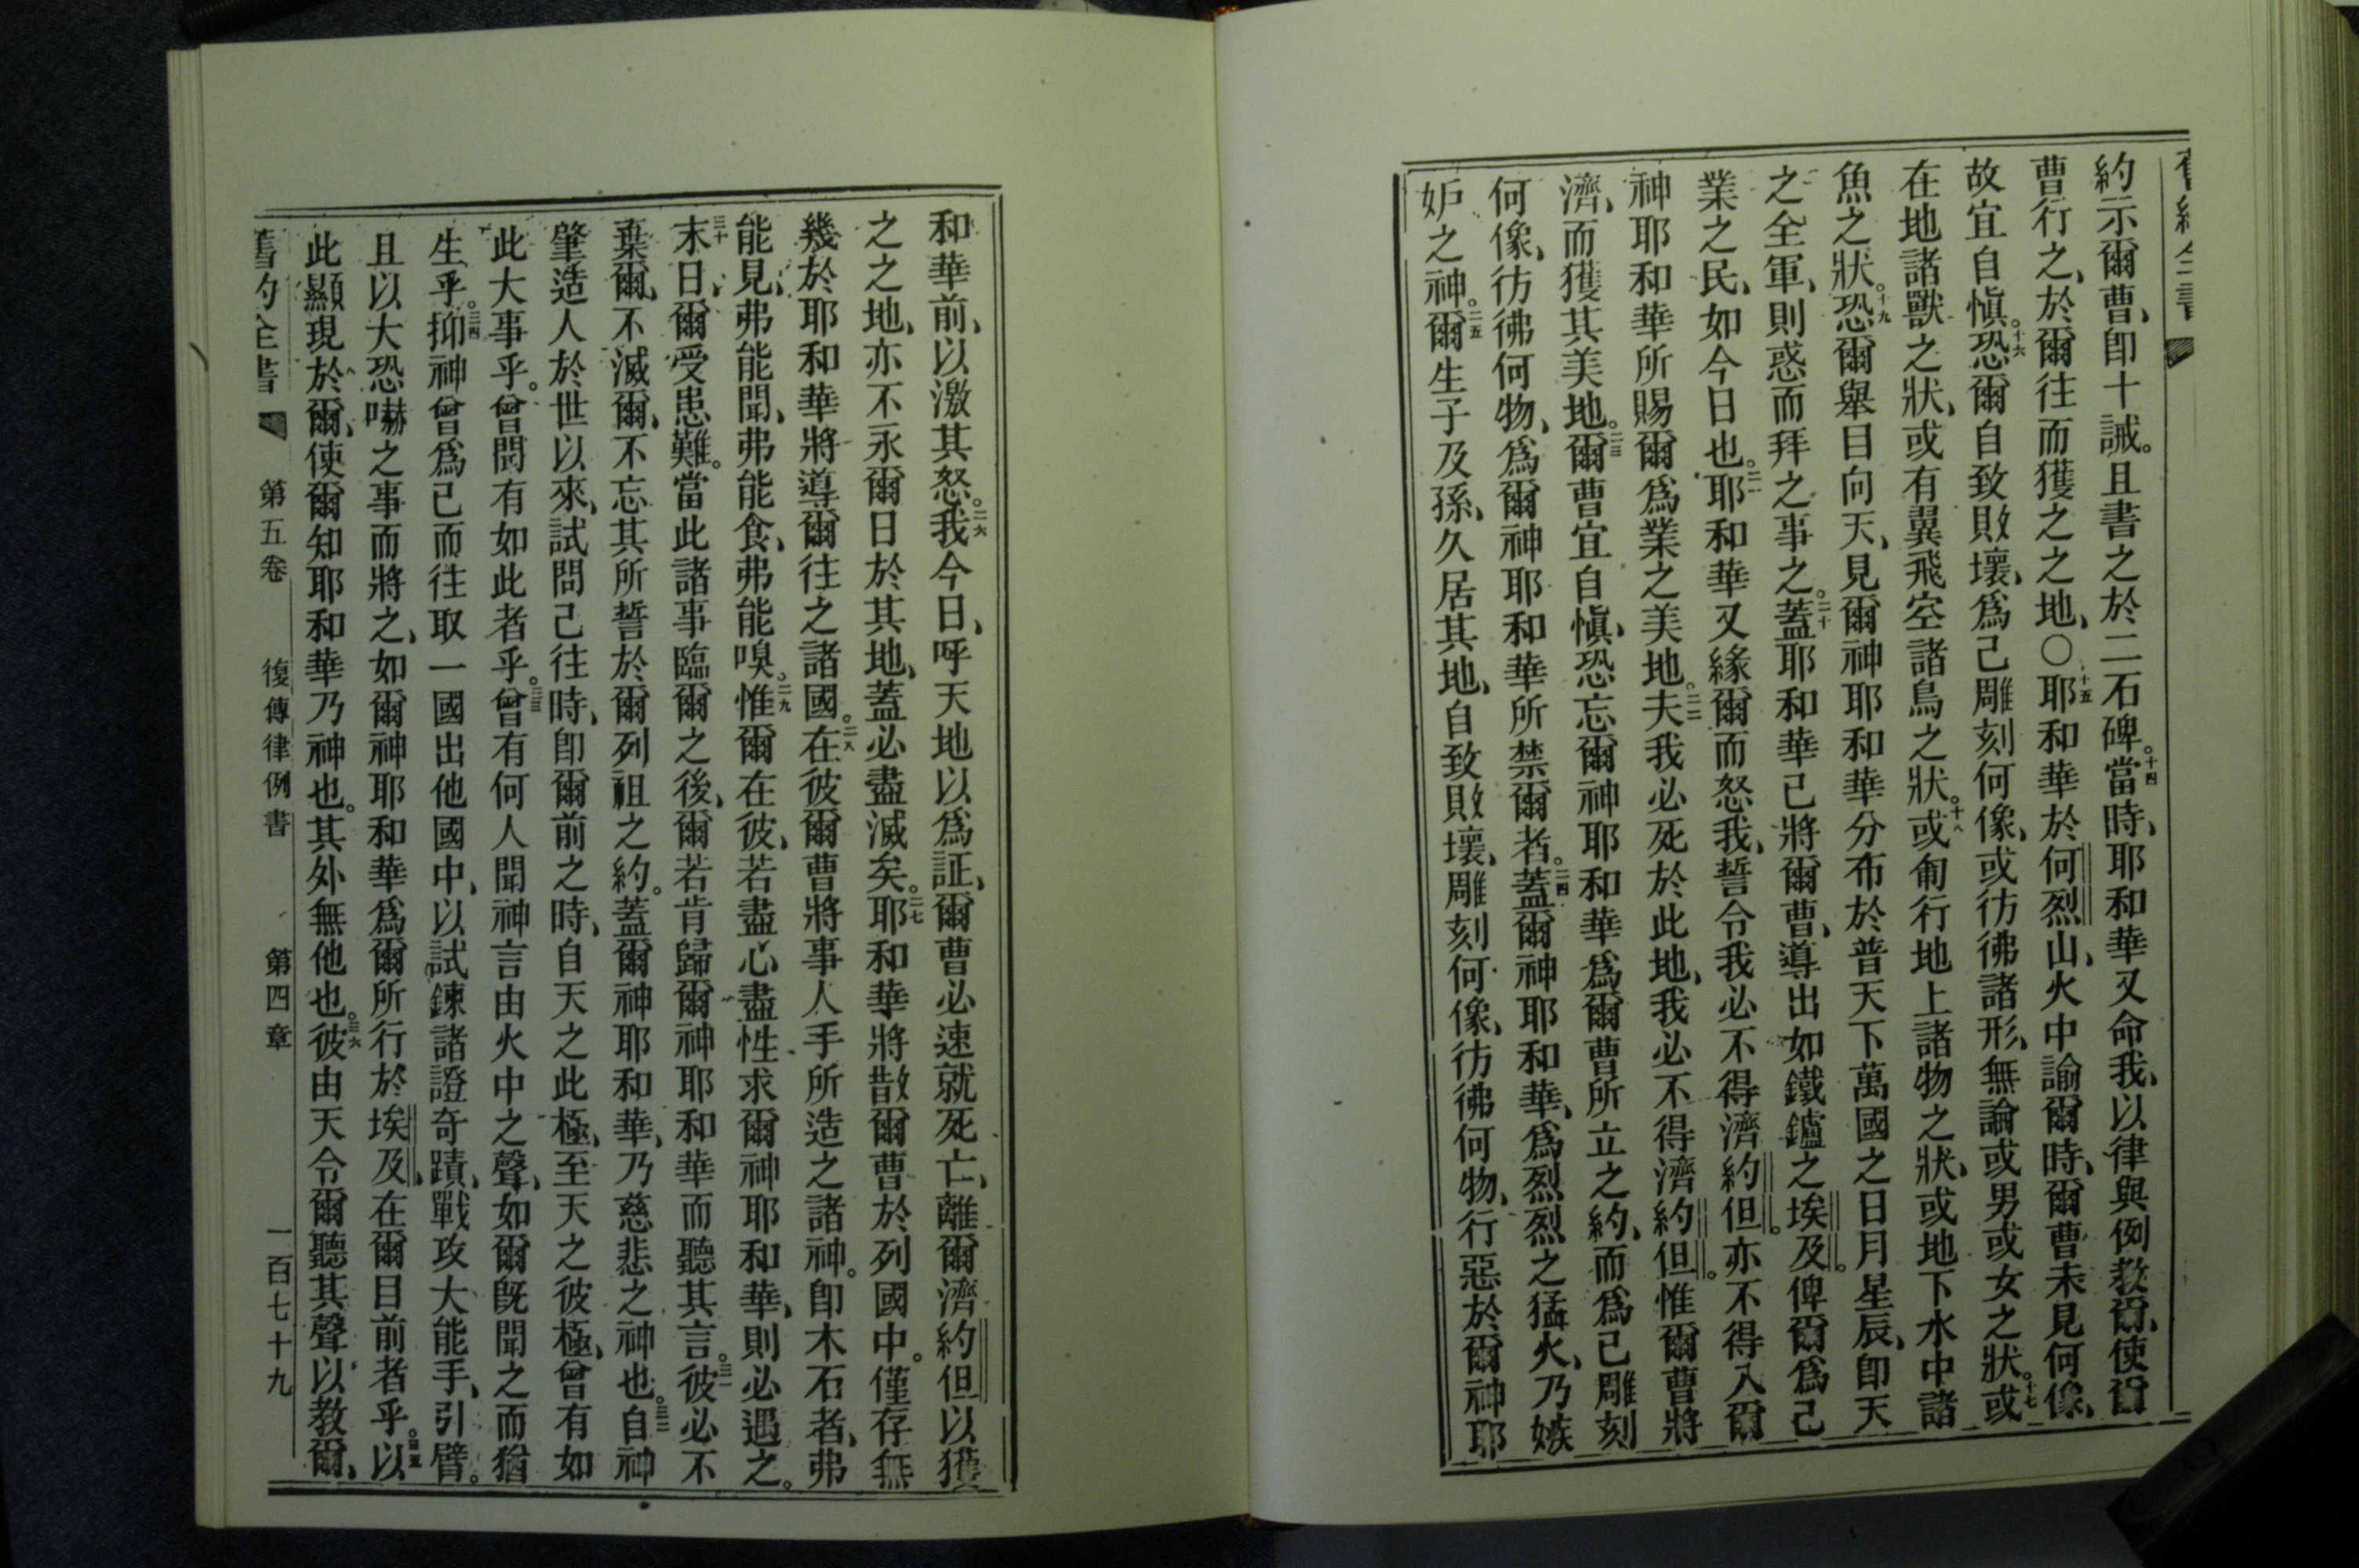 舊約全書
約示爾曹、卽十誡。且書之於二石碑。十四當時、耶和華又命我、以律與例教爾、使爾
曹行之、於爾往而獲之之地、〇十五耶和華於何烈山、火中諭爾時、爾曹未見何像、
故宜自愼。十六恐爾自致敗壞、爲己雕刻何像、或彷彿諸形、無論或男或女之狀。十七或
在地諸獸之狀、或有翼飛空諸鳥之狀。十八或匍行地上諸物之狀、或地下水中諸
魚之狀。十九恐爾舉目向天、見爾神耶和華分布於普天下萬國之日月星辰、卽天
之全軍、則惑而拜之事之。二十蓋耶和華已將爾曹、導出如鐵鑪之埃及。俾爾爲己
業之民、如今日也。二一耶和華又緣爾而怒我、誓令我必不得濟約但。亦不得入爾
神耶和華所賜爾爲業之美地。二二夫我必死於此地、我必不得濟約但。惟爾曹將
濟、而獲其美地。二三爾曹宜自愼、恐忘爾神耶和華爲爾曹所立之約、而爲己雕刻
何像、彷彿何物、爲爾神耶和華所禁爾者。二四蓋爾神耶和華、爲烈烈之猛火、乃嫉
妒之神。二五爾生子及孫、久居其地、自致敗壞、雕刻何像、彷彿何物、行惡於爾神耶
和華前、以激其怒。二六我今日、呼天地以爲証、爾曹必速就死亡、離爾濟約但以獲
之之地、亦不永爾日於其地、蓋必盡滅矣。二七耶和華將散爾曹於列國中。僅存無
幾於耶和華將導爾往之諸國。二八在彼爾曹將事人手所造之諸神。卽木石者、弗
能見、弗能聞、弗能食、弗能嗅。二九惟爾在彼、若盡心盡性求爾神耶和華、則必遇之。
三十末日、爾受患難。當此諸事臨爾之後、爾若肯歸爾神耶和華而聽其言。三一彼必不
棄爾、不滅爾、不忘其所誓於爾列祖之約。蓋爾神耶和華、乃慈悲之神也。三二自神
肇造人於世以來、試問己往時、卽爾前之時、自天之此極、至天之彼極、曾有如
此大事乎。曾聞有如此者乎。三三曾有何人聞神言由火中之聲、如爾旣聞之而猶
生乎。三四抑神曾爲己而往取一國出他國中、以試鍊諸證奇蹟、戰攻大能手、引臂。
且以大恐嚇之事而將之、如爾神耶和華爲爾所行於埃及、在爾目前者乎。三五以
此顯現於爾、使爾知耶和華乃神也。其外無他也。三六彼由天令爾聽其聲以教爾、
舊約全書 第五卷 復傳律例書 第四章 一百七十九